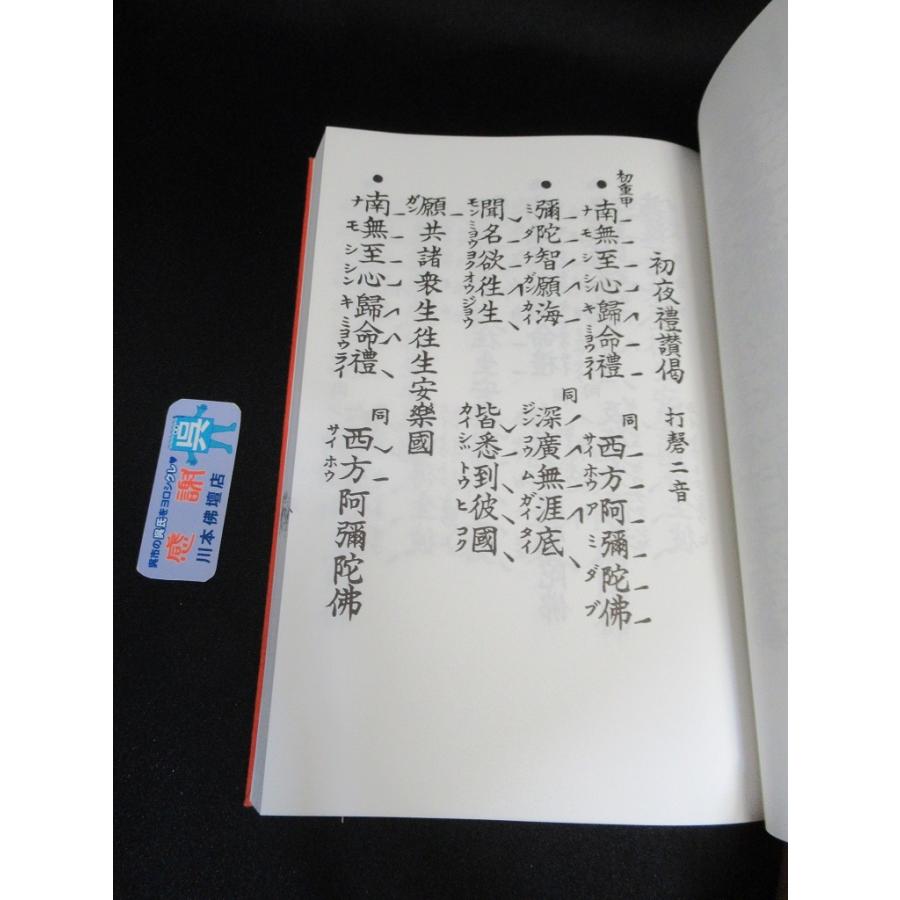 初夜禮讃偈 打磬二音
初重甲
南無至心歸命禮 同 西方阿彌陀佛
ナモシシンキミヨウライ サイホウアミダブ
彌陀智願海 同 深廣無涯底
ミダチガンカイ ジンコウムガイタイ
聞名欲徃生 皆悉到彼國
モンミヨウヨクオウジヨウ カイシットウヒコク
願共諸衆生徃生安樂國
ガン
南無至心歸命禮 同 西方阿彌陀佛
ナモシシンキミヨウライ サイホウ
呉
呉市の呉氏をヨロシクレ♥
感謝
川本佛壇店